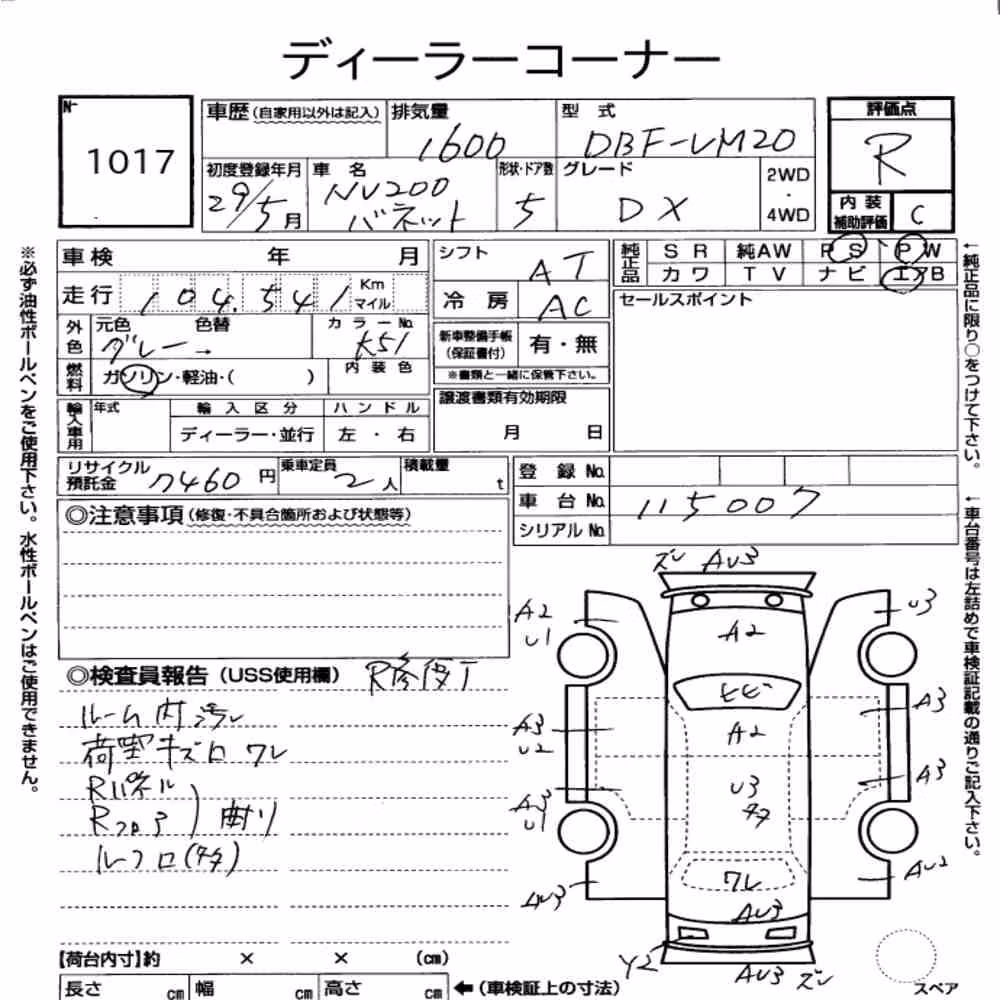 ディーラーコーナー
No 1017
車歴(自家用以外は記入) 排気量 1600 型式 DBF-VM20 評価点 R
初度登録年月 29/5月 車名 NV200 バネット 形状・ドア数 5 グレード DX 2WD・4WD 内装補助評価 C
車検 年 月 シフト AT 純正品 SR 純AW PS PW
走行 104,541 Km マイル 冷房 AC カワ TV ナビ エアB
外色 元色 グレー 色替 → カラーNo. K51 新車整備手帳(保証書付) 有・無 セールスポイント
燃料 ガソリン・軽油・( ) 内装色 ※書類と一緒に保管下さい。
輸入車用 年式 輸入区分 ハンドル 譲渡書類有効期限
ディーラー・並行 左・右 月 日
リサイクル預託金 7460円 乗車定員 2人 積載量 t 登録No.
車台No. 115007
◎注意事項(修復・不具合箇所および状態等) シリアルNo.
◎検査員報告(USS使用欄) R修復T
ルーム内汚レ
荷室キズ凹ワレ
Rパネル
Rフロア)曲り
ルーフ凹(タタ)
ズレ AU3
A2 U1 A2 U3
ヒビ
A3 U2 A2 A3
A3 U1 U3 タタ A3
AU3 ワレ AU2
AU3
Y2 AU3 ズレ
スペア
【荷台内寸】約 × × (cm)
長さ cm 幅 cm 高さ cm ←(車検証上の寸法)
※必ず油性ボールペンをご使用下さい。水性ボールペンはご使用できません。
←純正品に限り○をつけて下さい。
←車台番号は左詰めで車検証記載の通りご記入下さい。